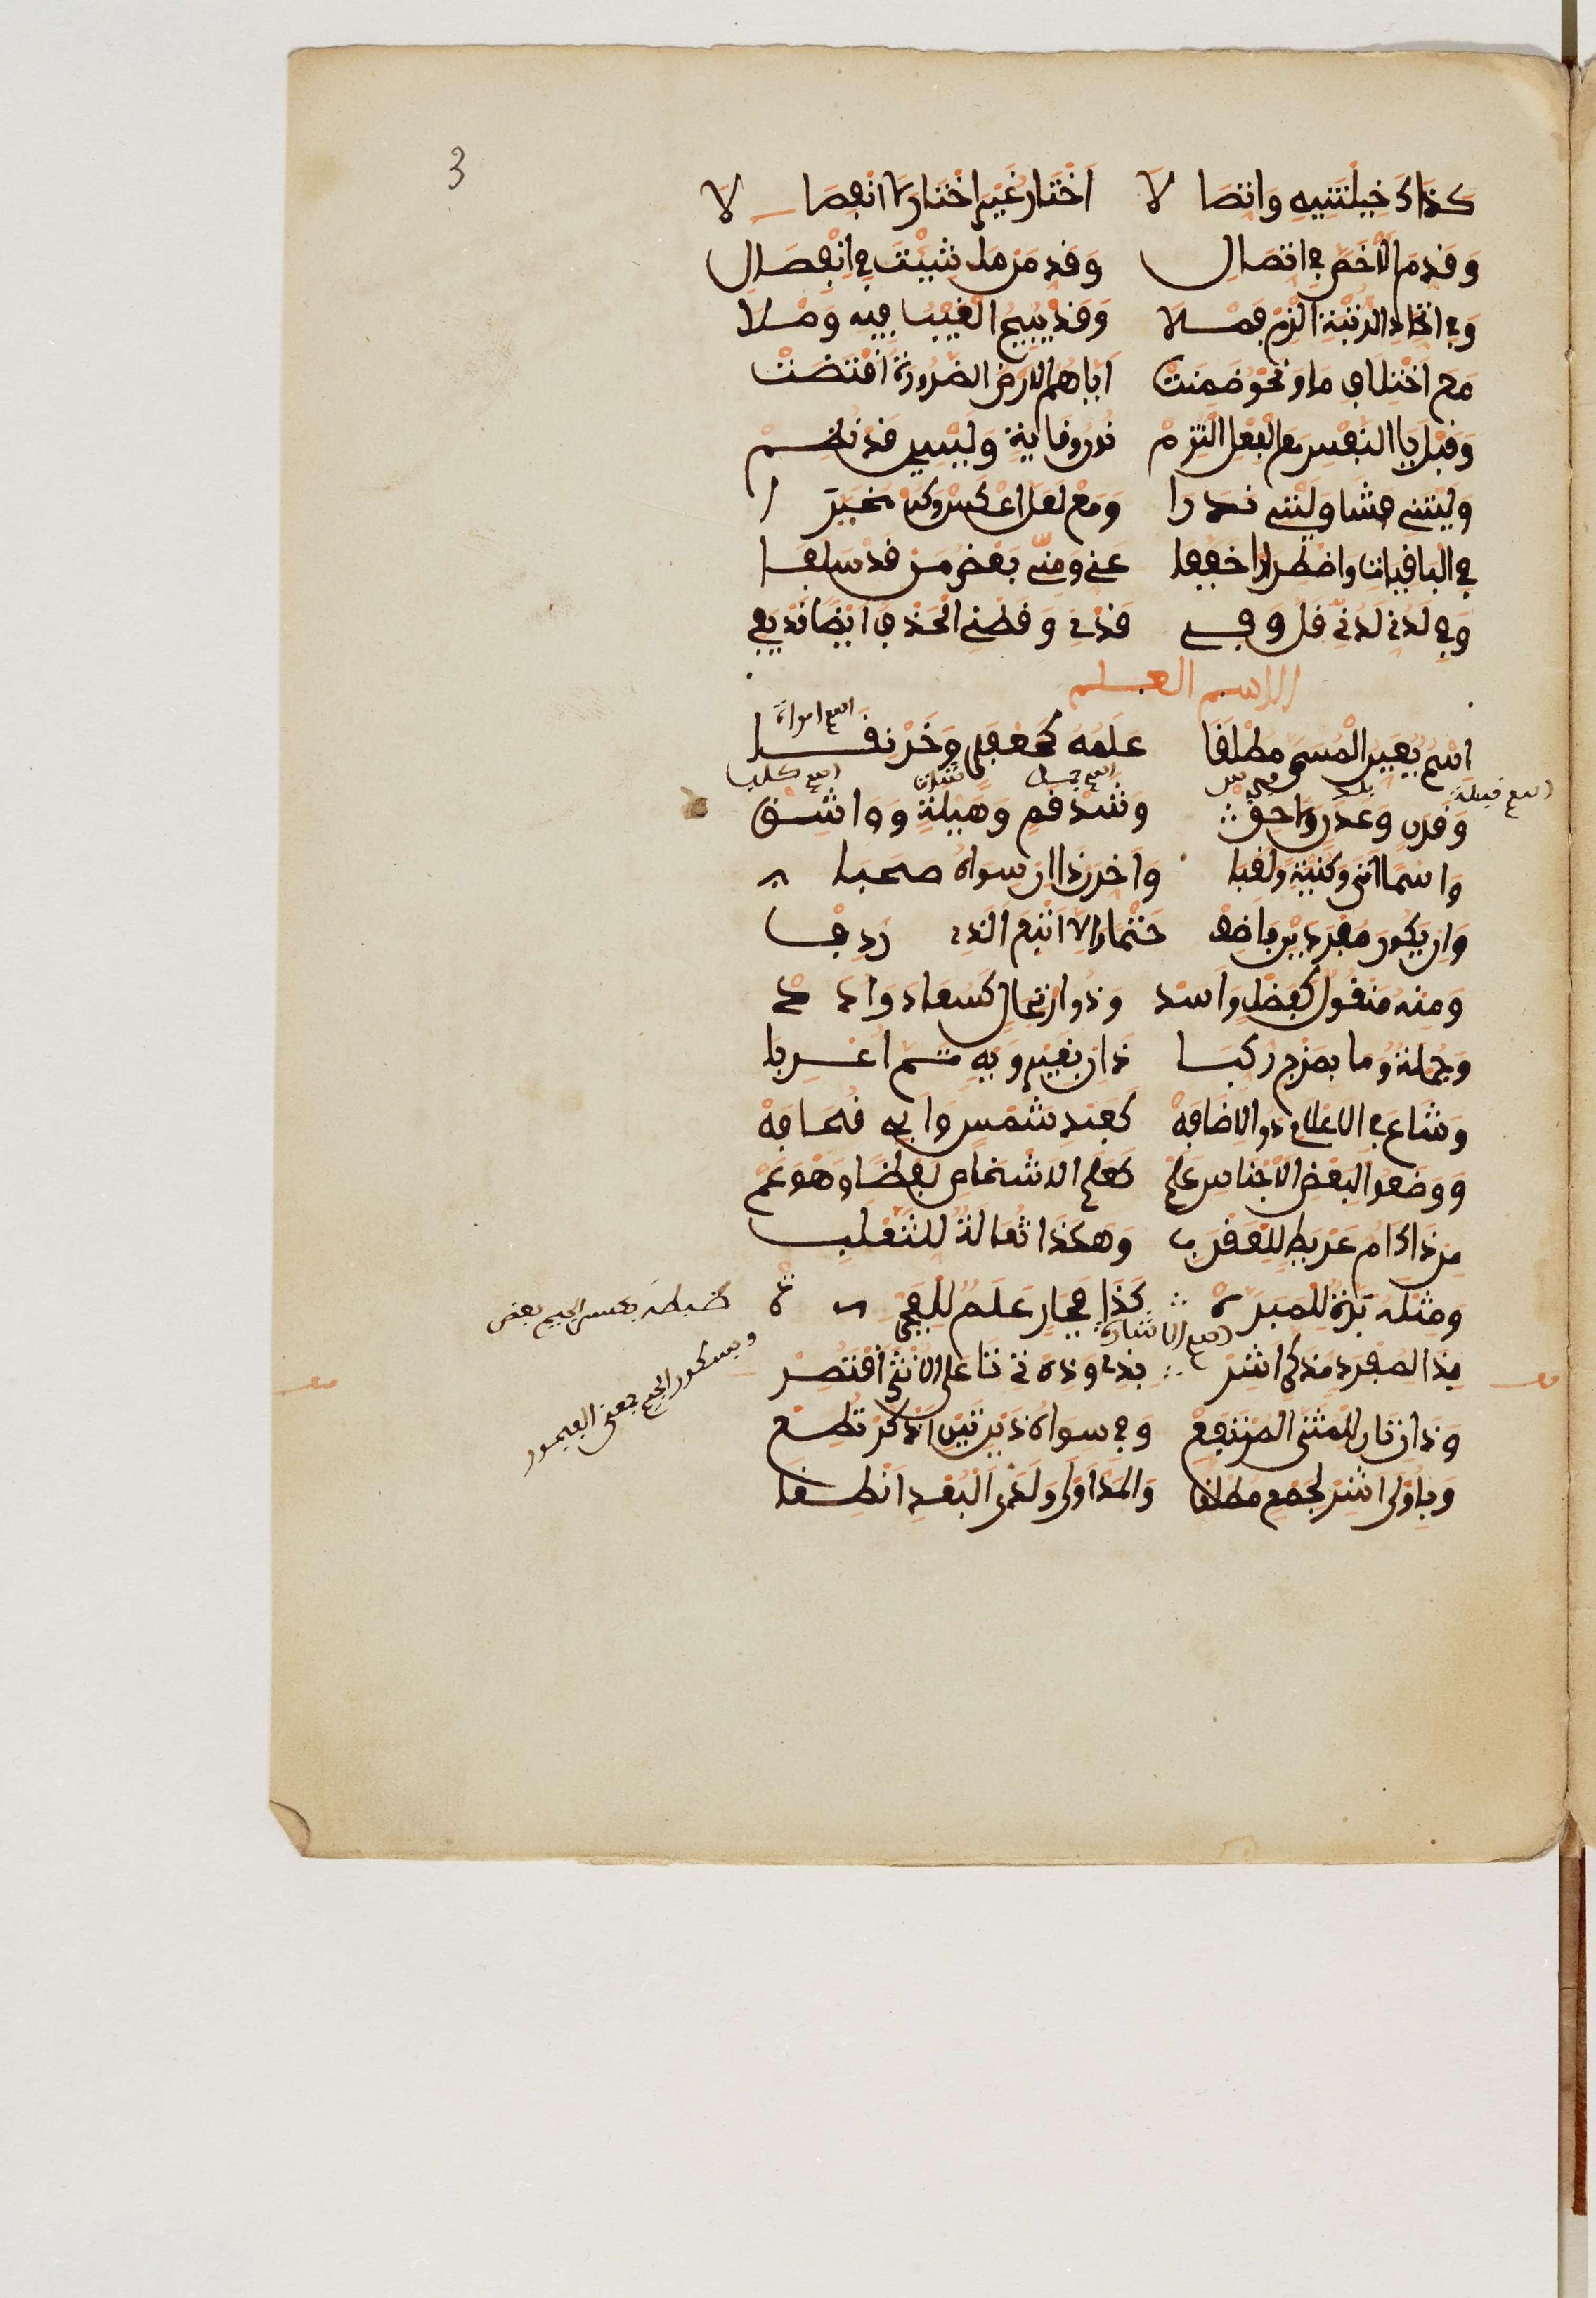 3
كَذَاكَ خِلْتَنِيهِ وَاتِّصَالَا أَخْتَارُ غَيْرِي اخْتَارَ الِانْفِصَالَا
وَقَدِّمِ الْأَخَصَّ فِي اتِّصَالِ وَقَدِّمَنْ مَا شِئْتَ فِي انْفِصَالِ
وَفِي اتِّحَادِ الرُّتْبَةِ الْزَمْ فَصْلَا وَقَدْ يُبِيحُ الْغَيْبُ فِيهِ وَصْلَا
مَعَ اخْتِلَافٍ مَا وَنَحْوَ ضَمِنَتْ إِيَّاهُمُ الْأَرْضُ الضَّرُورَةُ اقْتَضَتْ
وَقَبْلَ يَا النَّفْسِ مَعَ الْفِعْلِ الْتُزِمْ نُونُ وِقَايَةٍ وَلَيْسِي قَدْ نُظِمْ
وَلَيْتَنِي فَشَا وَلَيْتِي نَدَرَا وَمَعْ لَعَلَّ اعْكِسْ وَكُنْ مُخَيَّرَا
فِي الْبَاقِيَاتِ وَاضْطِرَارًا خَفَّفَا عَنِّي وَمِنِّي بَعْضُ مَنْ قَدْ سَلَفَا
وَفِي لَدُنِّي لَدُنِي قَلَّ وَفِي قَدْنِي وَقَطْنِي الْحَذْفُ أَيْضًا قَدْ يَفِي
الاسم العلم
اسم امراة
اِسْمٌ يُعَيِّنُ الْمُسَمَّى مُطْلَقَا عَلَمُهُ كَجَعْفَرٍ وَخِرْنِقَا
اسم قبيلة بلد اسم جمل شاة اسم كلب
وَقَرَنٍ وَعَدَنٍ وَلَاحِقٍ وَشَذْقَمٍ وَهَيْلَةٍ وَوَاشِقٍ
وَاسْمًا أَتَى وَكُنْيَةً وَلَقَبَا وَأَخِّرَنْ ذَا إِنْ سِوَاهُ صَحِبَا
وَإِنْ يَكُونَا مُفْرَدَيْنِ فَأَضِفْ حَتْمًا وَإِلَّا أَتْبِعِ الَّذِي رَدِفْ
وَمِنْهُ مَنْقُولٌ كَفَضْلٍ وَأَسَدْ وَذُو ارْتِجَالٍ كَسُعَادَ وَأُدَدْ
وَجُمْلَةٌ وَمَا بِمَزْجٍ رُكِّبَا ذَا إِنْ بِغَيْرِ وَيْهِ تَمَّ أُعْرِبَا
وَشَاعَ فِي الْأَعْلَامِ ذُو الْإِضَافَهْ كَعَبْدِ شَمْسٍ وَأَبِي قُحَافَهْ
وَوَضَعُوا لِبَعْضِ الْأَجْنَاسِ عَلَمْ كَعَلَمِ الْأَشْخَاصِ لَفْظًا وَهْوَ عَمّْ
مِنْ ذَاكَ أُمُّ عِرْيَطٍ لِلْعَقْرَبِ وَهَكَذَا ثُعَالَةٌ لِلثَّعْلَبِ
وَمِثْلُهُ بَرَّةُ لِلْمَبَرَّهْ كَذَا فَجَارِ عَلَمٌ لِلْفَجْرَهْ
ضبطه بكسر الجيم بعض
وبسكون الجيم بمعنى الفجور
اسم الاشارة
بِذَا لِمُفْرَدٍ مُذَكَّرٍ أَشِرْ بِذِي وَذِهْ تِي تَا عَلَى الْأُنْثَى اقْتَصِرْ
وَذَانِ تَانِ لِلْمُثَنَّى الْمُرْتَفِعْ وَفِي سِوَاهُ ذَيْنِ تَيْنِ اذْكُرْ تُطِعْ
وَبِأُولَى أَشِرْ لِجَمْعٍ مُطْلَقَا وَالْمَدُّ أَوْلَى وَلَدَى الْبُعْدِ انْطِقَا